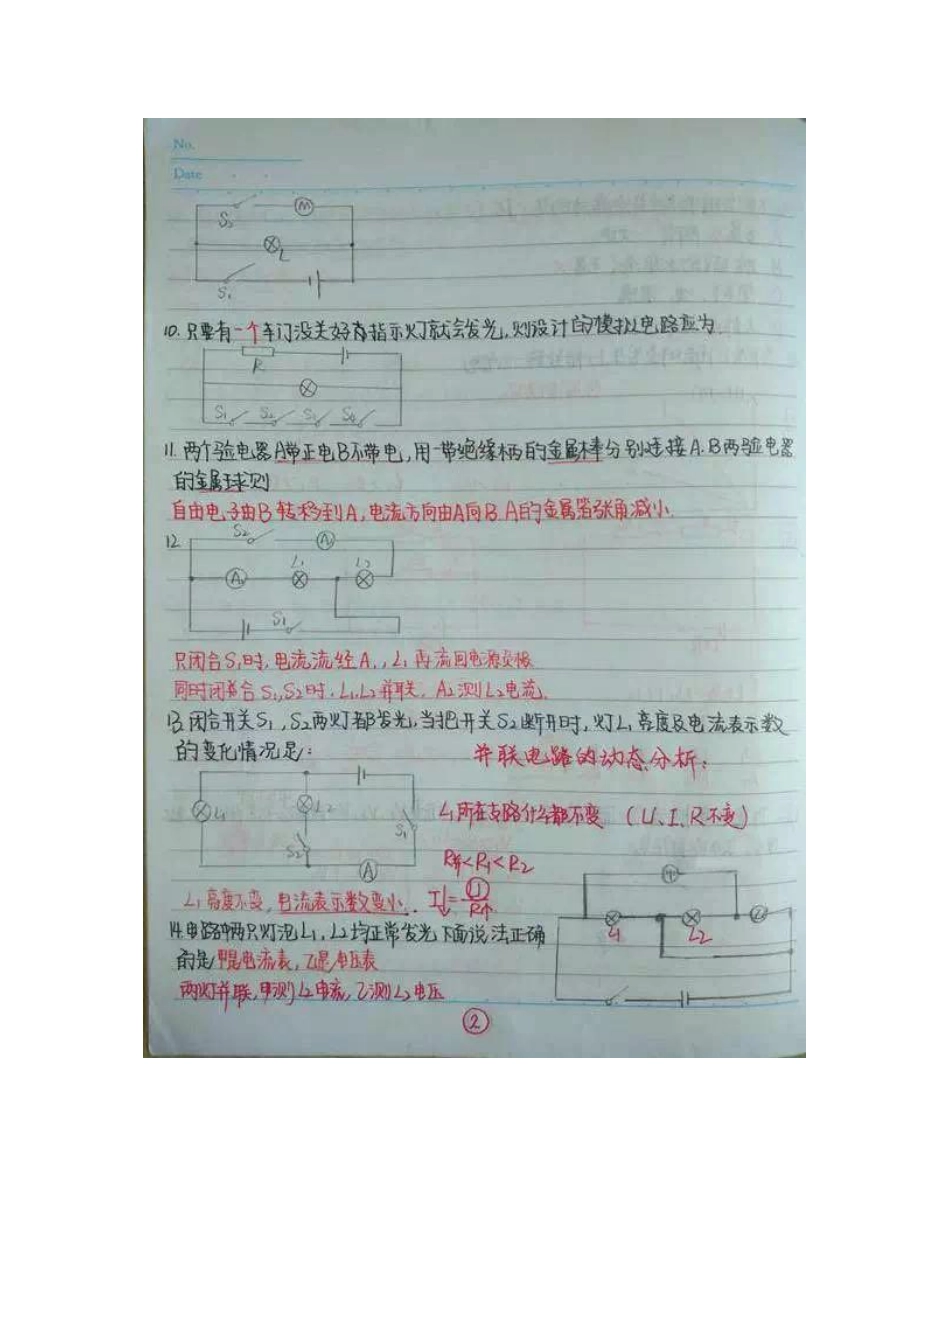 No.
Date
S₂ M
L
S₁
10. 只要有一个车门没关好高指示灯就会发光,则设计的模拟电路应为
R
S₁ S₂ S₃ S₄
11. 两个验电器A带正电B不带电,用一带绝缘柄的金属棒分别连接A.B两验电器
的金属球则
自由电子由B转移到A,电流方向由A向B A的金属箔张角减小.
12. S₂ A₂
A₁ L₁ L₂
S₁
只闭合S₁时,电流流经A₁,L₁再流回电源负极
同时闭合S₁,S₂时.L₁L₂并联.A₂测L₂电流.
13. 闭合开关S₁,S₂两灯都发光,当把开关S₂断开时,灯L₁亮度及电流表示数
的变化情况是: 并联电路的动态分析:
L₁ L₂ S₁ L₁所在支路什么都不变 (U、I、R不变)
S₂ A R并<R₁<R₂
L₁亮度不变,电流表示数变小. I↓=U/R↑
14. 电路中两只灯泡L₁,L₂均正常发光下面说法正确
的是甲是电流表,乙是电压表
两灯并联,甲测L₂电流,乙测L₂电压
甲
L₁ L₂ 乙
2